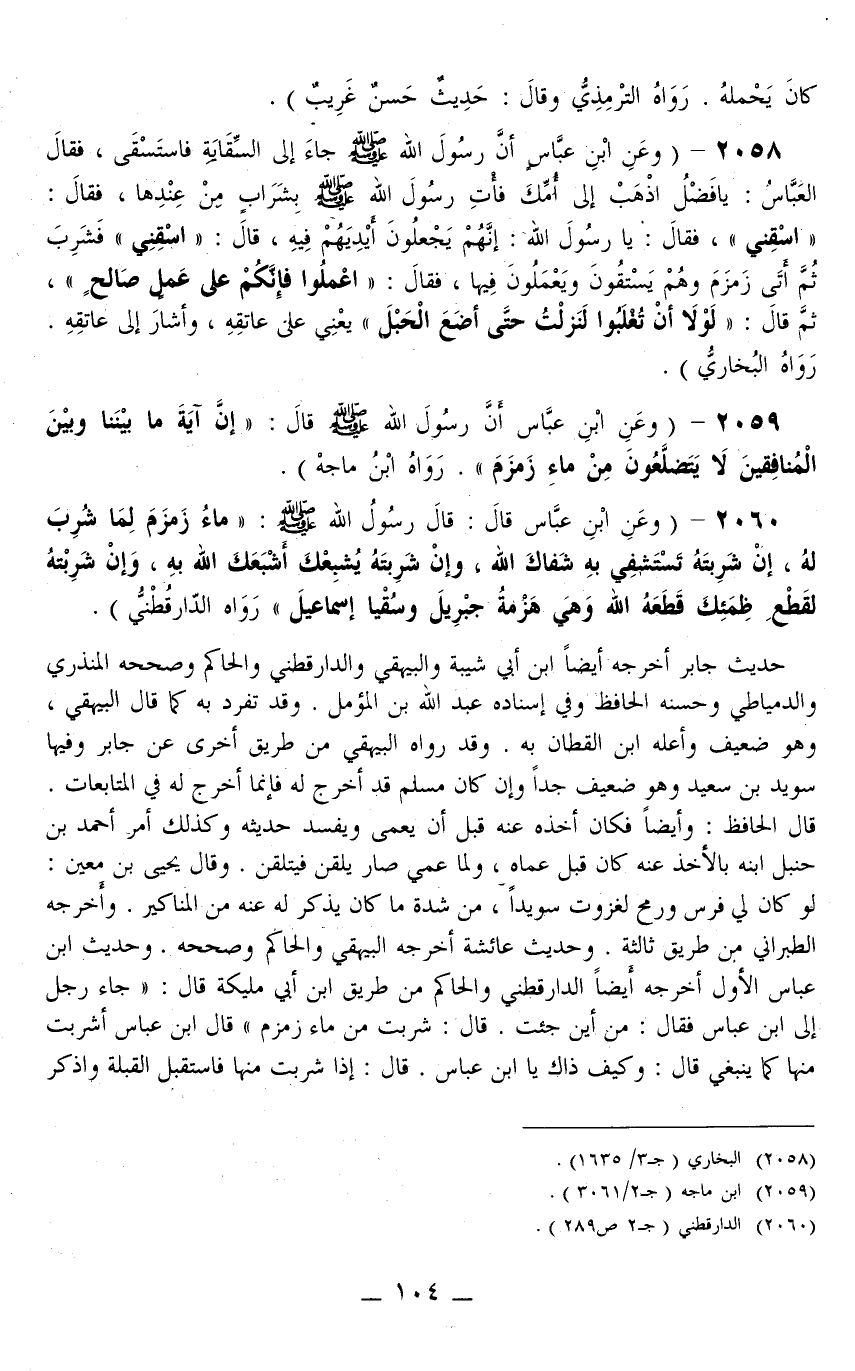 كانَ يَحْملهُ . رَوَاهُ التِّرْمِذِيُّ وقالَ : حَدِيثٌ حَسنٌ غَرِيبٌ ) .
٢٠٥٨ – ( وعَنِ ابْنِ عبَّاسٍ أنَّ رسُولَ الله ﷺ جاءَ إلى السِّقَايَةِ فاستَسْقَى ، فقالَ
العَبَّاسُ : يافَضْلُ اذْهَبْ إلى أُمِّكَ فأْتِ رسُولَ الله ﷺ بِشَرَابٍ مِنْ عِنْدِها ، فقالَ :
« اسْقِني » ، فقالَ : يا رسُولَ الله : إنَّهُمْ يَجْعلُونَ أَيْدِيَهُمْ فِيهِ ، قالَ : « اسْقِنِي » فَشَرِبَ
ثُمَّ أَتَى زَمزَمَ وهُمْ يَسْتقُونَ ويَعْمَلُونَ فِيها ، فقالَ : « اعْملُوا فإنَّكُمْ على عَملٍ صَالحٍ » ،
ثمَّ قالَ : « لَوْلَا أنْ تُغْلَبُوا لَنزلْتُ حتَّى أضَعَ الْحَبْلَ » يعْنِي على عاتقِهِ ، وأشارَ إلى عاتِقِهِ .
رَوَاهُ البُخاريُّ ) .
٢٠٥٩ – ( وعَنِ ابْنِ عبَّاس أَنَّ رسُولَ الله ﷺ قالَ : « إنَّ آيَةَ ما بيْنَنا وبيْنَ
الْمُنافِقينَ لَا يَتَضلَّعُونَ مِنْ ماءِ زَمزَمَ » . رَوَاهُ ابْنُ ماجهْ ) .
٢٠٦٠ – ( وعَنِ ابْنِ عبَّاس قالَ : قالَ رسُولُ الله ﷺ : « ماءُ زَمزَمَ لِمَا شُرِبَ
لهُ ، إنْ شَرِبتَهُ تَسْتَشفِي بهِ شَفاكَ الله ، وإنْ شَرِبتَهُ يُشبِعْكَ أَشْبَعَكَ الله بهِ ، وَإنْ شَرِبْتهُ
لقَطْعِ ظِمَئِكَ قَطَعَهُ الله وَهيَ هَزْمةُ جبْرِيلَ وسُقْيا إسْماعيلَ » رَوَاه الدّارقُطْنيُّ ) .
حديث جابر أخرجه أيضاً ابن أبي شيبة والبيهقي والدارقطني والحاكم وصححه المنذري
والدمياطي وحسنه الحافظ وفي إسناده عبد الله بن المؤمل . وقد تفرد به كما قال البيهقي ،
وهو ضعيف وأعله ابن القطان به . وقد رواه البيهقي من طريق أخرى عن جابر وفيها
سويد بن سعيد وهو ضعيف جداً وإن كان مسلم قد أخرج له فإنما أخرج له في المتابعات .
قال الحافظ : وأيضاً فكان أخذه عنه قبل أن يعمى ويفسد حديثه وكذلك أمر أحمد بن
حنبل ابنه بالأخذ عنه كان قبل عماه ، ولما عمي صار يلقن فيتلقن . وقال يحيى بن معين :
لو كان لي فرس ورمح لغزوت سويداً ، من شدة ما كان يذكر له عنه من المناكير . وأخرجه
الطبراني من طريق ثالثة . وحديث عائشة أخرجه البيهقي والحاكم وصححه . وحديث ابن
عباس الأول أخرجه أيضاً الدارقطني والحاكم من طريق ابن أبي مليكة قال : « جاء رجل
إلى ابن عباس فقال : من أين جئت . قال : شربت من ماء زمزم » قال ابن عباس أشربت
منها كما ينبغي قال : وكيف ذاك يا ابن عباس . قال : إذا شربت منها فاستقبل القبلة واذكر
(٢٠٥٨) البخاري ( جـ٣/ ١٦٣٥) .
(٢٠٥٩) ابن ماجه ( جـ٣٠٦١/٢ ) .
(٢٠٦٠) الدارقطني ( جـ٢ ص٢٨٩ ) .
– ١٠٤ –